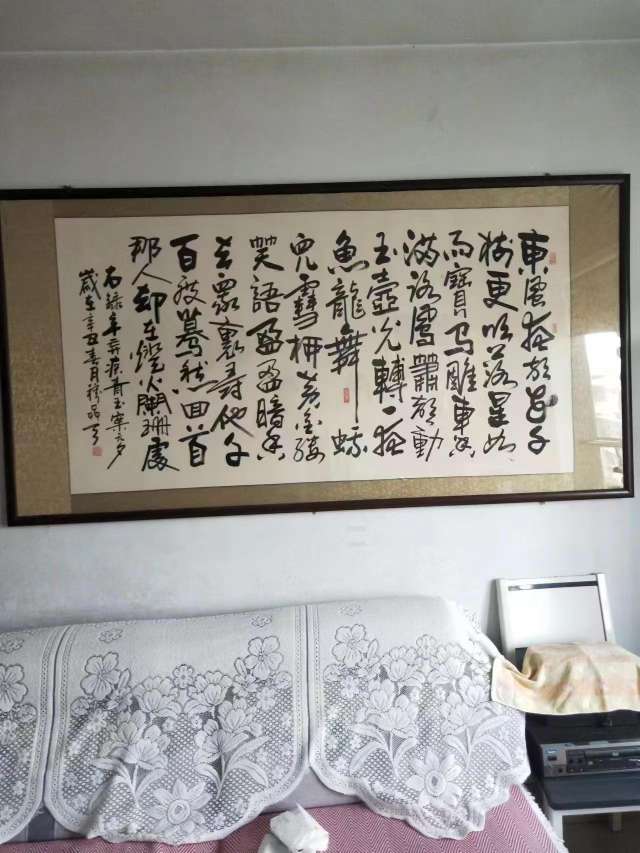 東風夜放花千
樹更吹落星如
雨寶马雕車香
满路鳳簫聲動
玉壺光轉一夜
魚龍舞蛾
兒雪柳黄金缕
笑語盈盈暗香
去眾裏尋他千
百度驀然回首
那人却在燈火闌珊處
右録辛弃疾青玉案元夕
歲在辛丑春月